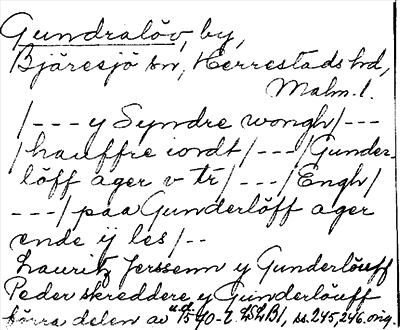 Gundralöv, by,
Bjäresjö sn, Herrestads hd,
Malm. l.
/--- y Syndre wongh/---
/hauffre iordt/---/Gunder-
löff ager v tr/---/Engh/
---/paa Gunderlöff ager
ende ÿ les/--
Lauritz Jerssenn y Gunderlöuff
Peder skreddere y Gunderlöuff
förra delen av 40-t. LLB1, ss. 245, 246. orig.